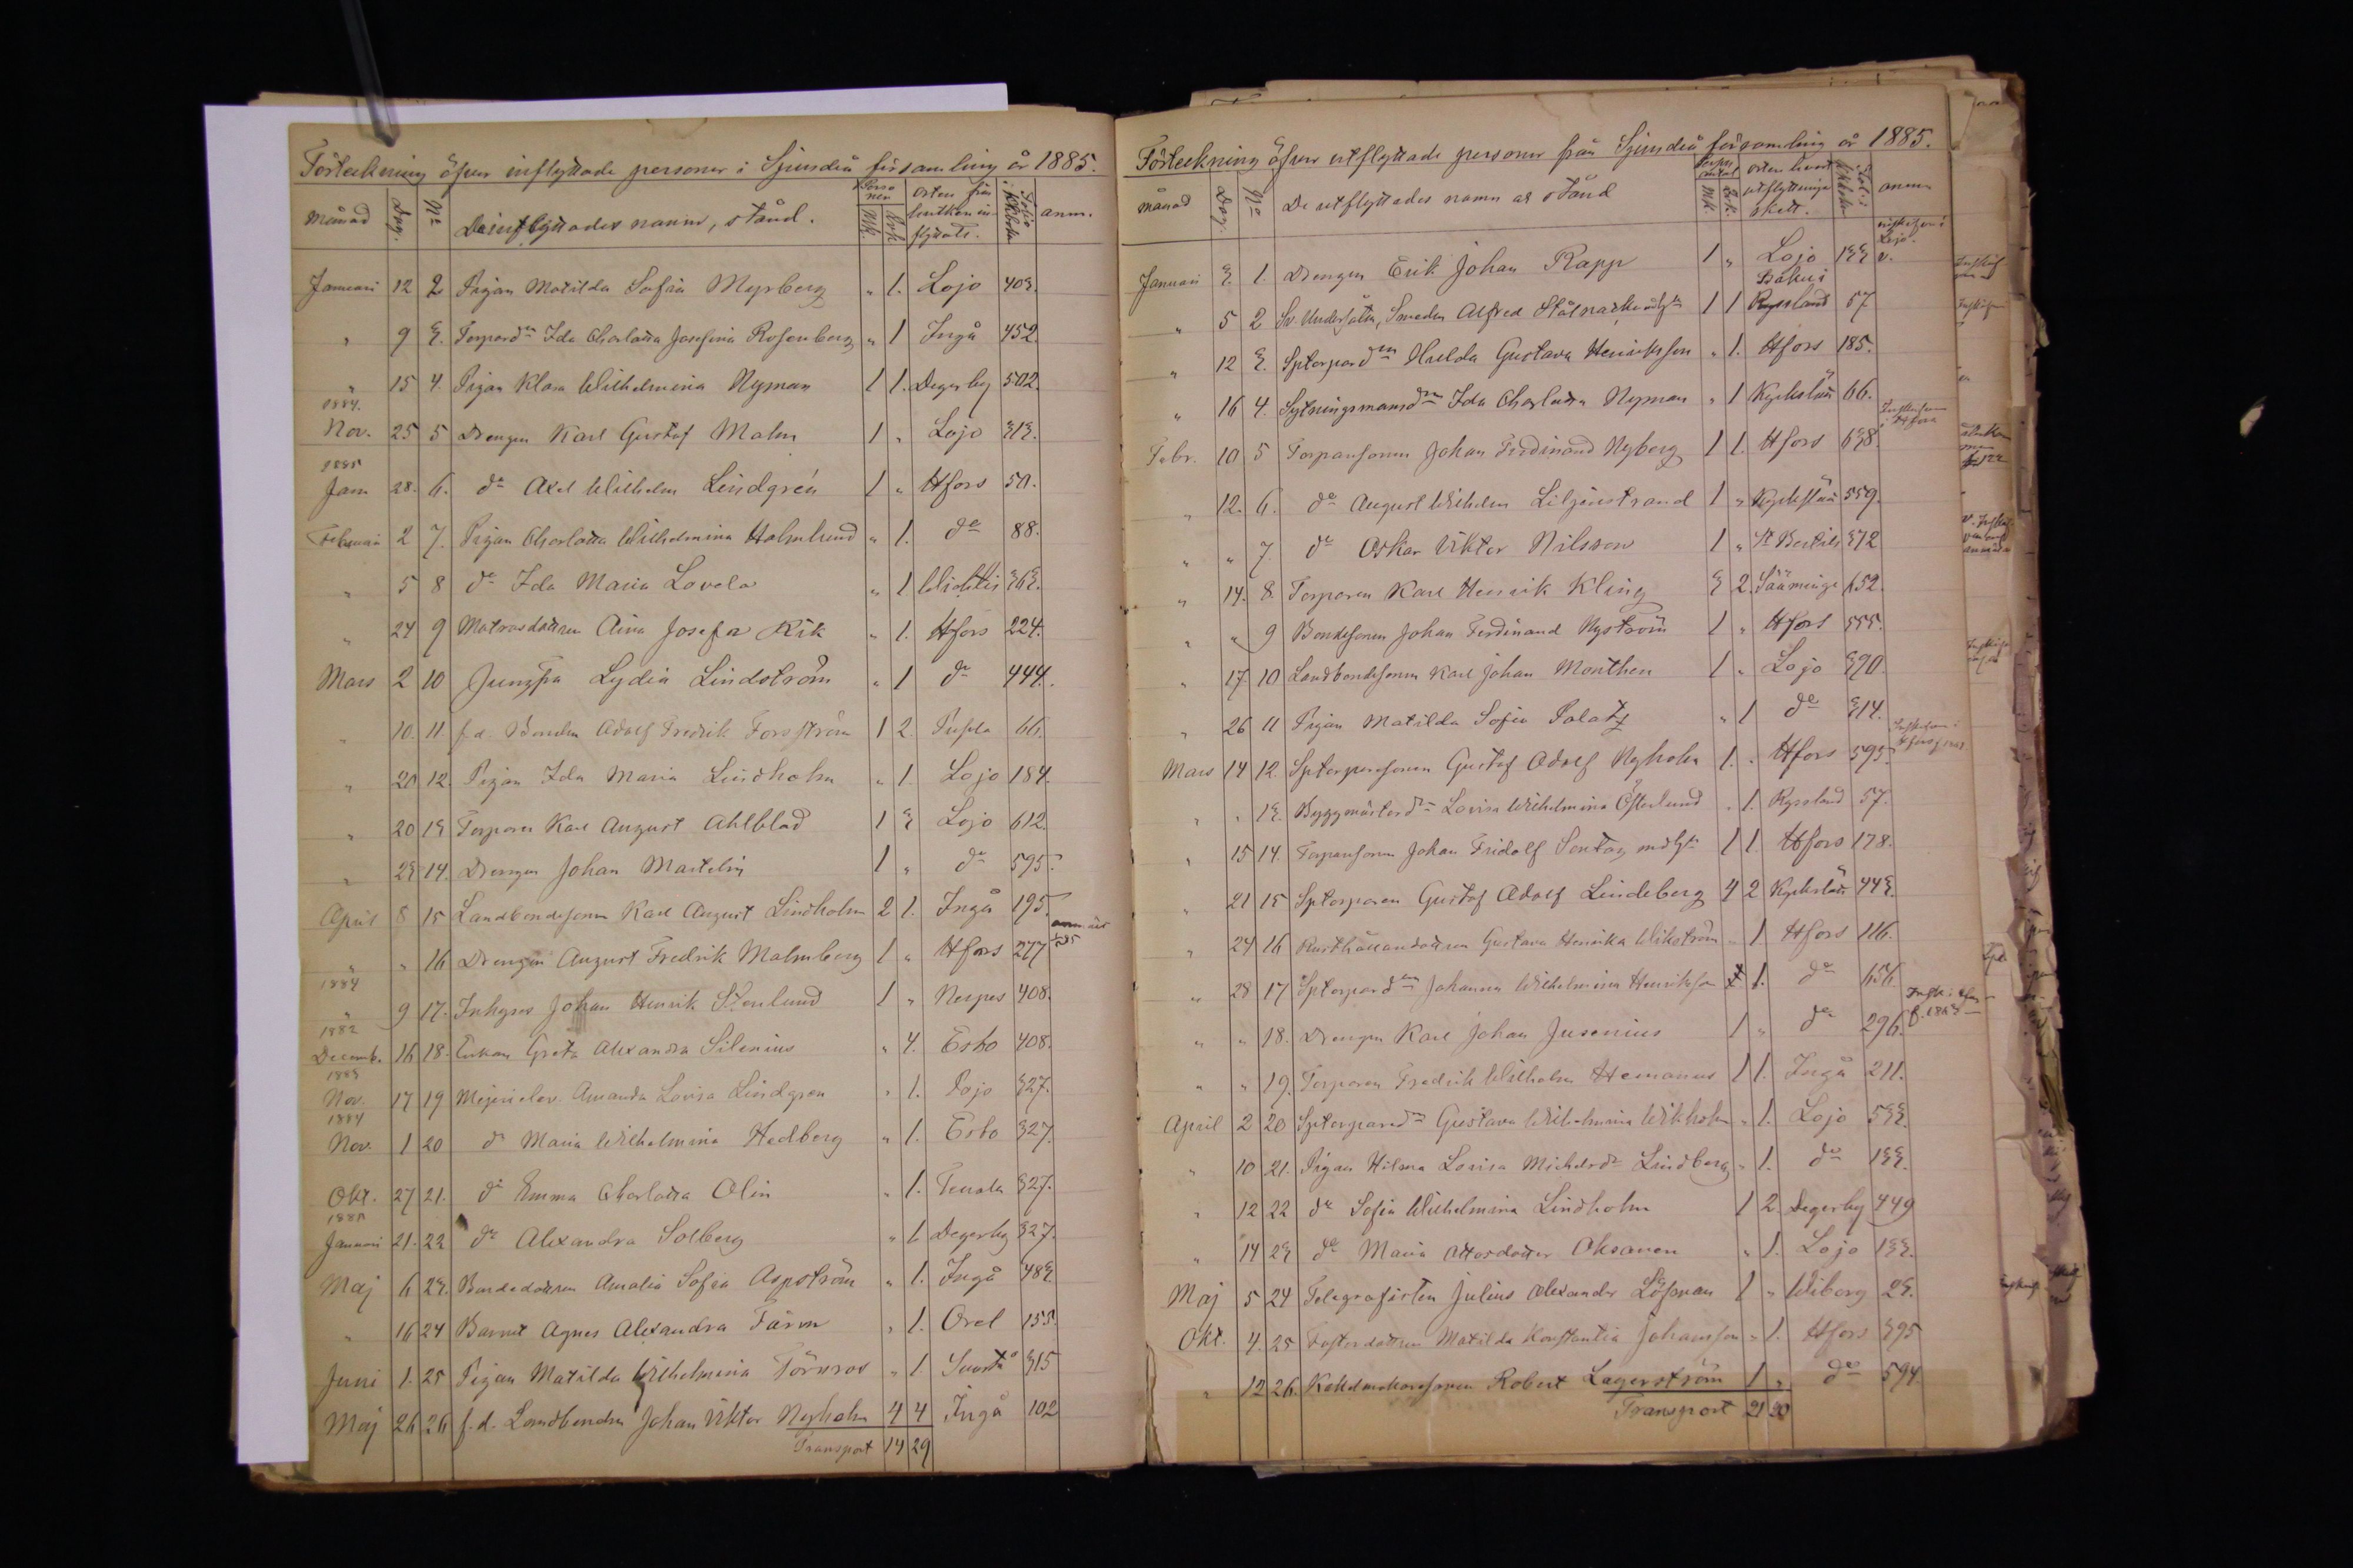 Förteckning öfver inflyttade personer i Sjundeå församling år 1885.
Månad Dag. No De inflyttades namn, stånd. Personer Mk. Qvk. Orten från hvilken inflyttats. Folio i Kkboken anm.
Januari 12 2 Pigan Matilda Sofia Myrberg " 1. Lojo 403.
" 9 3. Torpard:n Ida Charlotta Josefina Rosenberg " 1 Ingå 452.
" 15 4. Pigan Klara Wilhelmina Nyman 1 1. Degerby 502.
1884.
Nov. 25 5 Drengen Karl Gustaf Malm 1 " Lojo 313.
1885
Jan 28. 6. do Axel Wilhelm Lindgrén 1 " Hfors 50.
Februari 2 7. Pigan Charlotta Wilhelmina Holmlund " 1. do 88.
" 5 8 do Ida Maria Lovela " 1 Wichtis 363.
" 24 9 Matrosdottren Aina Josefa Rik " 1. Hfors 224.
Mars 2 10 Jungfra Lydia Lindström " 1 do 444.
" 10. 11. f.d. Bonden Adolf Fredrik Forsström 1 2. Pusula 66.
" 20 12. Pigan Ida Maria Lindholm " 1. Lojo 184.
" 20 13 Torparen Karl August Ahlblad 1 3 Lojo 612.
" 23 14. Drengen Johan Martelin 1 " do 595.
April 8 15 Landbondesonen Karl August Lindholm 2 1. Ingå 195.
" " 16 Drengen August Fredrik Malmberg 1 " Hfors 277
1884
" 9 17. Inhyses Johan Henrik Stenlund 1 " Nerpes 408.
1882
Decemb. 16 18. Enkan Greta Alexandra Silenius " 4. Esbo 408.
1883
Nov. 17 19 Mejerielev. Amanda Lovisa Lindgren " 1. Pojo 327.
1884
Nov. 1 20 do Maria Wilhelmina Hedberg " 1. Esbo 327.
Okt. 27 21. do Emma Charlotta Olin " 1. Tenala 327.
1885
Januari 21. 22 do Alexandra Solberg " 1 Degerby 327.
Maj 6 23. Bondedottren Amalia Sofia Aspström " 1. Ingå 483.
" 16 24 Barnet Agnes Alexandra Färm " 1. Orel 155.
Juni 1. 25 Pigan Matilda Wilhelmina Törnros " 1 315
Maj 26 26 f.d. Landbonden Johan Viktor Nyholm 4 4 Ingå 102
Transport 14 29
Förteckning öfver utflyttade personer från Sjundeå församling år 1885.
Månad Dag. No De utflyttades namn och stånd Person antal Mk. Qvk. orten hvart utflyttningen skett. Fol. i Kkboken anm
Januari 3. 1. Drengen Erik Johan Rapp 1 " Lojo 133
" 5 2 Sv. Undersåten, Smeden Alfred 1 1 Baku i Ryssland 57
" 12 3. Sptorpard:n Hulda Gustava Henriksson " 1. Hfors 185.
" 16 4. Sytningsmansd:n Ida Charlotta Nyman " 1 Kyrkslätt 66.
Febr. 10 5 Torparsonen Johan Fredinand Nyberg 1 1. Hfors 638.
" 12. 6. do August Wilhelm Liljenstrand 1 " Kyrkslätt 559.
" " 7. do Oskar Viktor Nilsson 1 " St Bertils 372
" 14. 8. Torparen Karl Henrik Kling 3 2. Sääminge 652.
" " 9 Bondesonen Johan Ferdinand Nyström 1 " Hfors 555.
" 17. 10 Landbondesonen Karl Johan Monthen 1 " Lojo 390.
" 26 11 Pigan Matilda Sofia Palatz " 1 do 314.
Mars 14 12. Sptorparesonen Gustaf Adolf Nyholm 1. " Hfors 595.
" " 13. Byggmästard:n Lovisa Wilhelmina Österlund " 1. Ryssland 57.
" 15 14. Torparsonen Johan Fridolf Sontag 1 1. Hfors 178.
" 21 15 Sptorparen Gustaf Adolf Lindeberg 4 2 Kyrkslätt 443.
" 24 16 Rusthållaredottren Gustava Henrika Wikström " 1 Hfors 116.
" 28 17 Sptorpard:n Johanna Wilhelmina Henriksson 1. do 656.
" " 18. Drengen Karl Johan Jusenius 1 " do 296.
" " 19. Torparen Fredrik Wilhelm Hemanus 1 1. Ingå 211.
April 2 20 Sptorpared:n Gustava Wilhelmina Wikholm " 1. Lojo 533.
" 10 21. Pigan Hilma Lovisa Michelsdr Lindberg " 1. do 133.
" 12 22 do Sofia Wilhelmina Lindholm 1 2. Degerby 449
" 14 23 do Maria Ottosdotter Oksanen " 1. Lojo 133.
Maj 5 24 Telegrafisten Julius Alexander Löfman 1 " Wiborg 23.
Okt. 4. 25 Fosterdottren Matilda Konstantia Johansson " 1. Hfors 395
" 12 26. Kakelmakaresonen Robert Lagerström 1 " do 594.
Transport 21 20